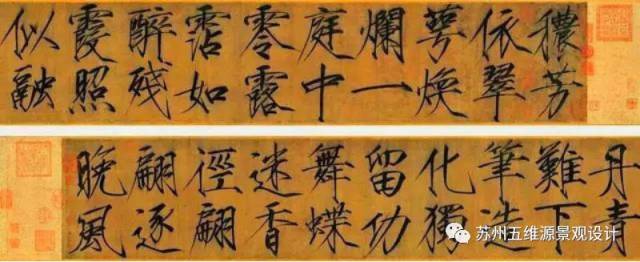 穠芳
依翠
萼煥
爛一
庭中
零露
霑如
醉殘
霞照
似融
丹青
難下
筆造
化獨
留功
舞蝶
迷香
徑翩
翩逐
晚風
苏州五维源景观设计